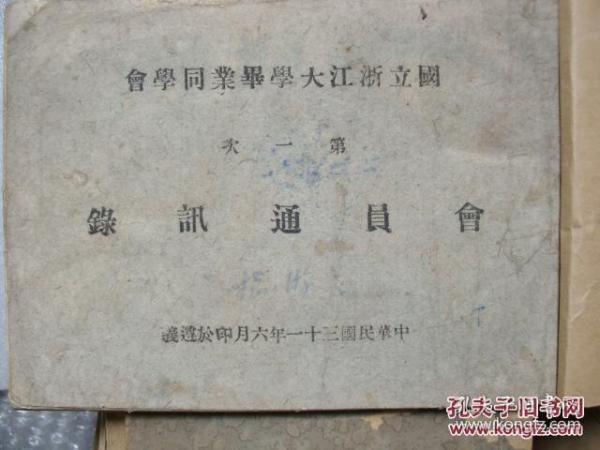 國立浙江大學畢業同學會
第一次
會員通訊錄
中華民國三十一年六月印於遵義
孔夫子旧书网